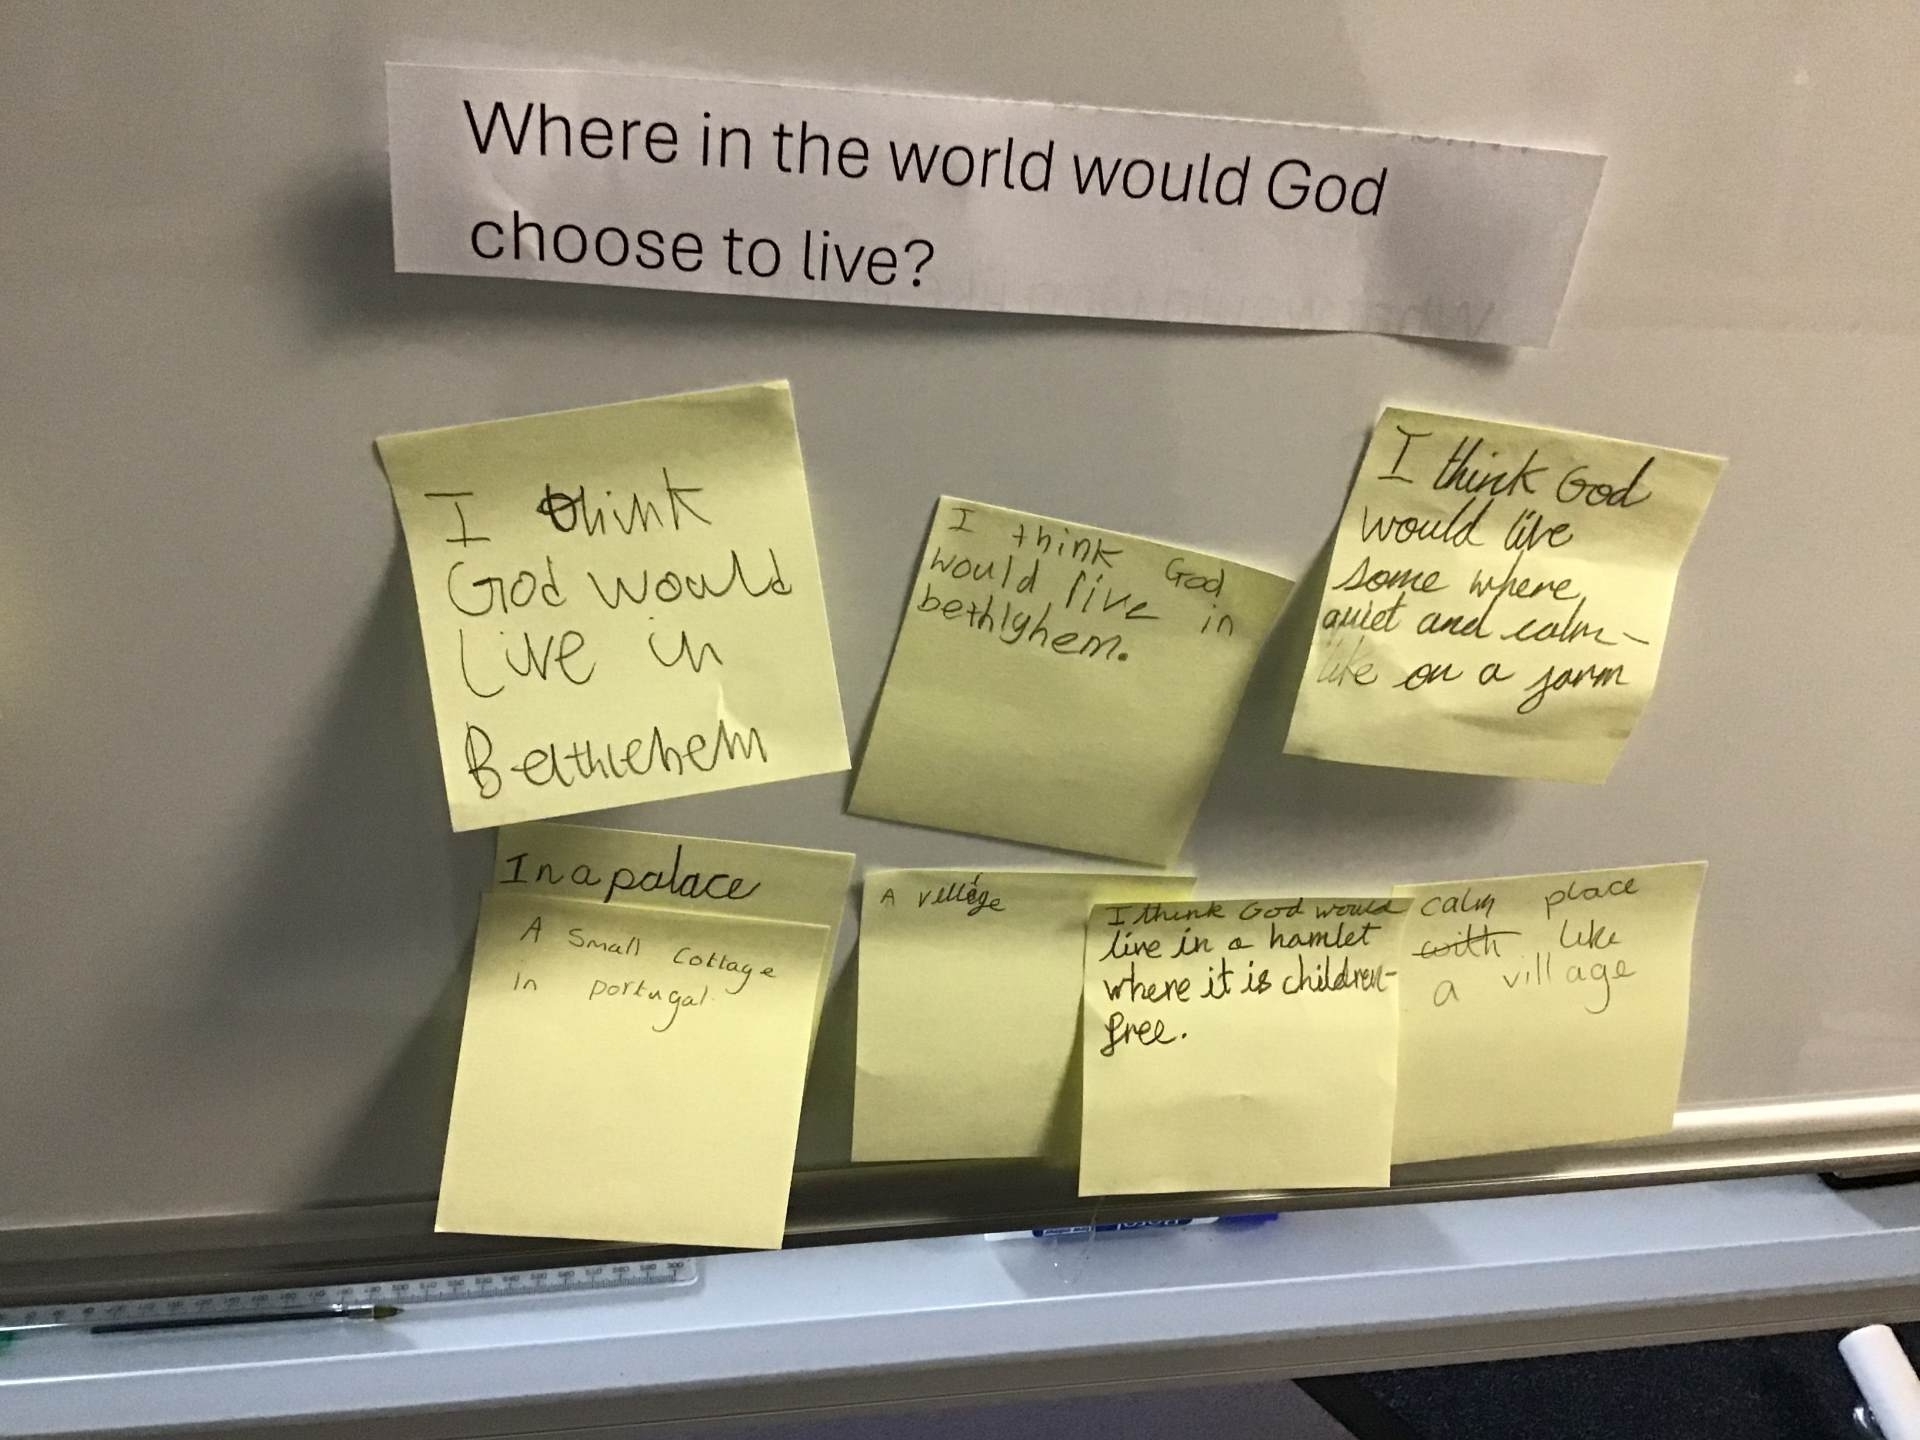 Where in the world would God
choose to live?
I think
God would
Live in
Bethlehem
I think God
would live in
bethlghem.
I think God
would live
some where
quiet and calm-
like on a farm
In a palace
A small cottage
in portugal.
A village
I think God would
live in a hamlet
where it is children-
free.
calm place
with like
a village